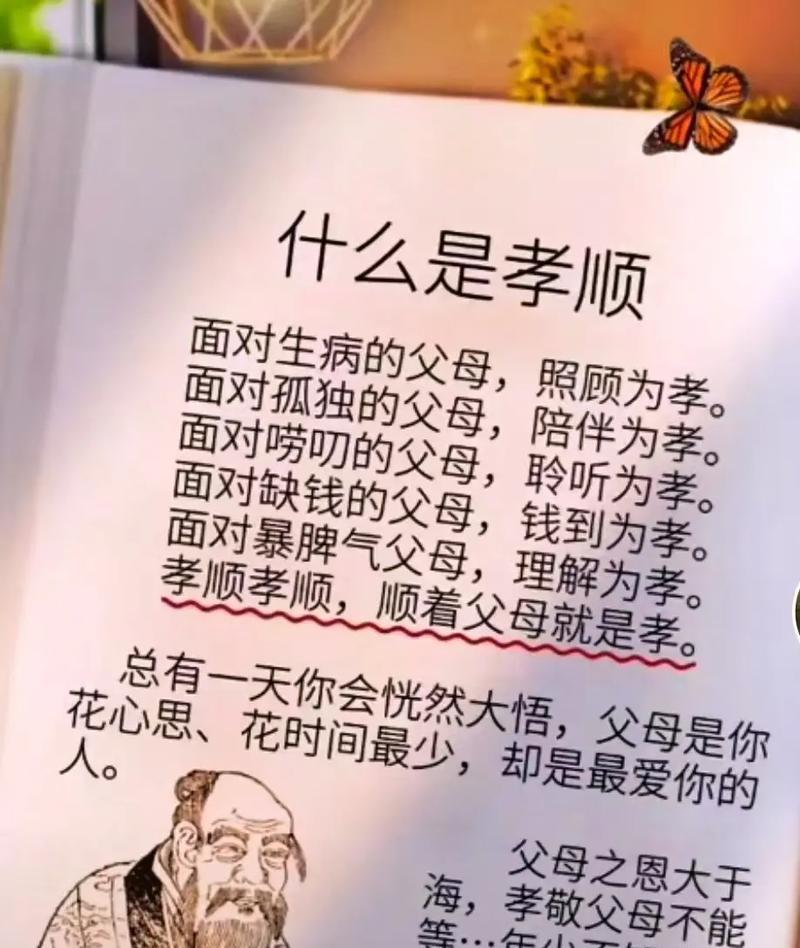 什么是孝顺
面对生病的父母，照顾为孝。
面对孤独的父母，陪伴为孝。
面对唠叨的父母，聆听为孝。
面对缺钱的父母，钱到为孝。
面对暴脾气父母，理解为孝。
孝顺孝顺，顺着父母就是孝。
总有一天你会恍然大悟，父母是你
花心思、花时间最少，却是最爱你的
人。
父母之恩大于
海，孝敬父母不能
等…年少不